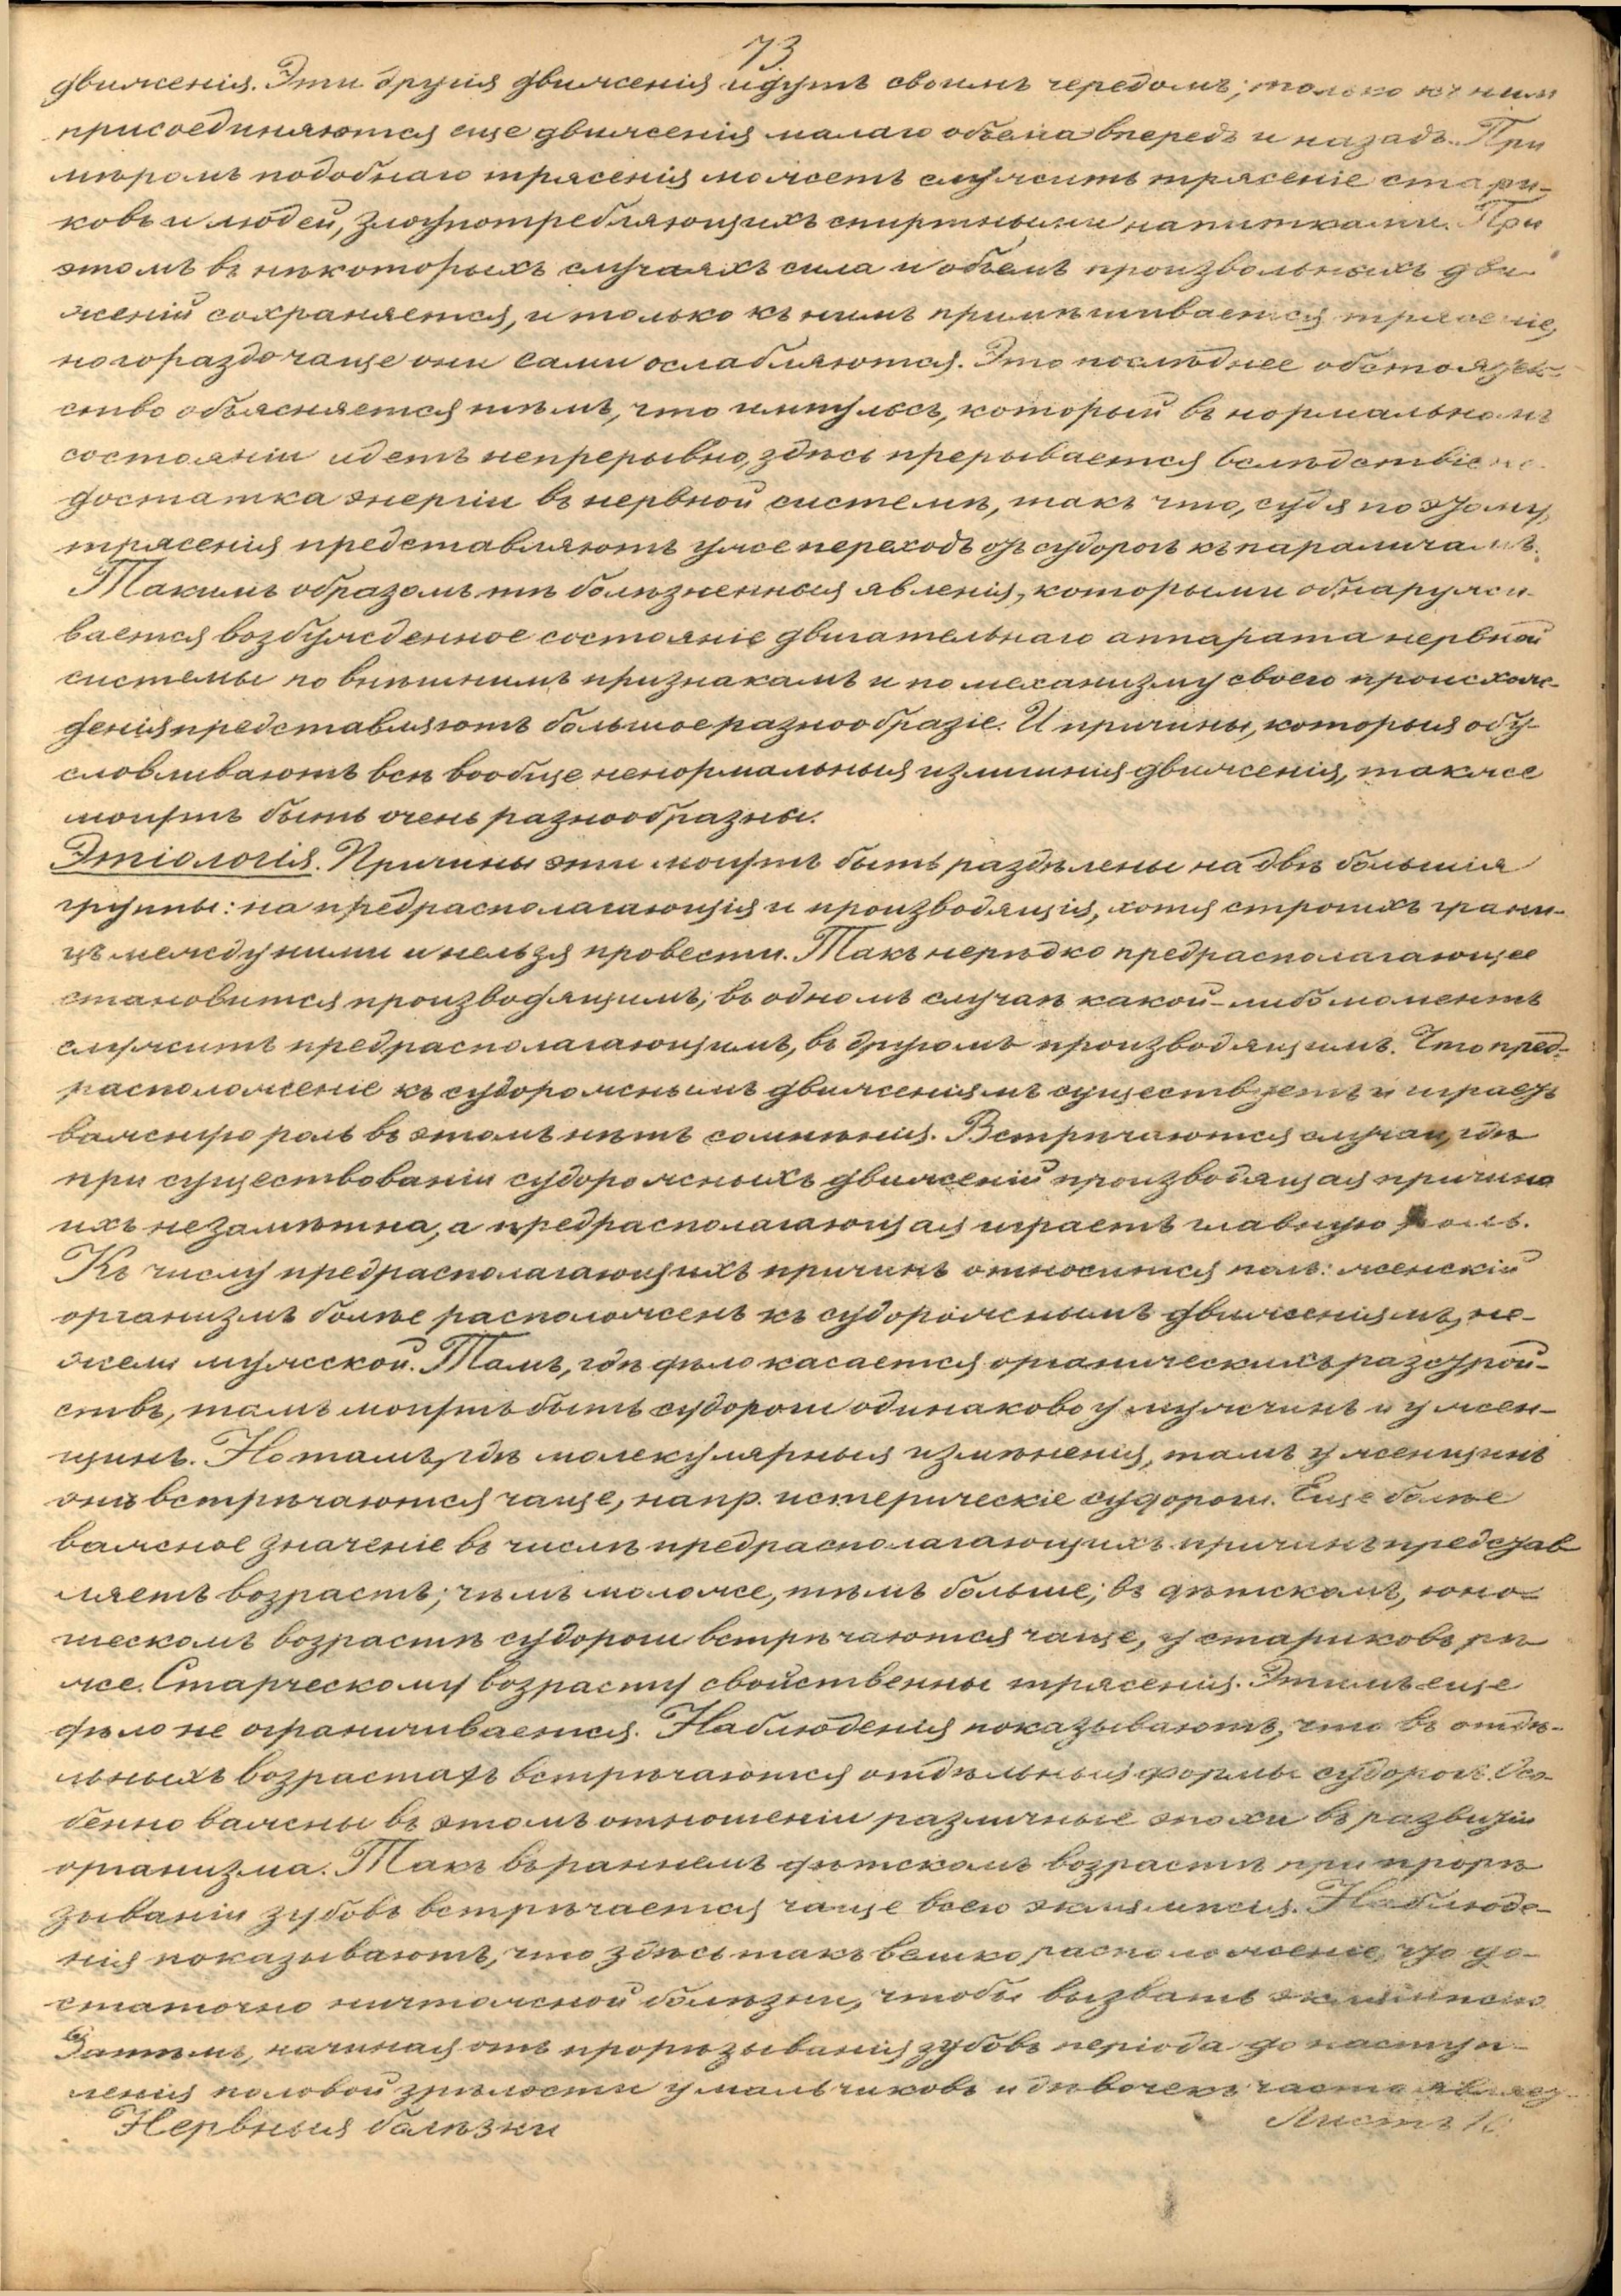 73.
движенія. Эти другія движенія идутъ своимъ чередомъ; только къ нимъ
присоединяются еще движенія малаго объема впередъ и назадъ. При
мѣромъ подобнаго трясенія можетъ служить трясеніе стари-
ковъ и людей, злоупотребляющихъ спиртными напитками. При
этомъ въ нѣкоторыхъ случаяхъ сила и объемъ произвольныхъ дви-
женій сохраняется, и только къ нимъ примѣшивается трясеніе,
но гораздо чаще они сами ослабляются. Это послѣднее обстоятель-
ство объясняется тѣмъ, что импульсъ, который въ нормальномъ
состояніи идетъ непрерывно, здѣсь прерывается вслѣдствіе не-
достатка энергіи въ нервной системѣ, такъ что, судя по этому,
трясенія представляютъ уже переходъ отъ судорогъ къ параличамъ.
Такимъ образомъ тѣ болѣзненныя явленія, которыми обнаружи-
вается возбужденное состояніе двигательнаго аппарата нервной
системы по внѣшнимъ признакамъ и по механизму своего происхож-
денія представляютъ большое разнообразіе. И причины, которыя обу-
словливаютъ всѣ вообще ненормальныя излишнія движенія, также
могутъ быть очень разнообразны.
Этіологія. Причины эти могутъ быть раздѣлены на двѣ большія
группы: на предрасполагающія и производящія, хотя строгихъ грани-
цъ между ними и нельзя провести. Такъ нерѣдко предрасполагающее
становится производящимъ; въ одномъ случаѣ какой-либо моментъ
служитъ предрасполагающимъ, въ другомъ производящимъ. Что пред-
расположеніе къ судорожнымъ движеніямъ существуетъ и играетъ
важную роль въ этомъ нѣтъ сомнѣнія. Встрѣчаются случаи, гдѣ
при существованіи судорожныхъ движеній производящая причина
ихъ незамѣтна, а предрасполагающая играетъ главную роль.
Къ числу предрасполагающихъ причинъ относится полъ: женскій
организмъ болѣе расположенъ къ судорожнымъ движеніямъ, не-
жели мужской. Тамъ, гдѣ дѣло касается органическихъ разстрой-
ствъ, тамъ могутъ быть судороги одинаково у мужчинъ и у жен-
щинъ. Но тамъ, гдѣ молекулярныя измѣненія, тамъ у женщинъ
онѣ встрѣчаются чаще, напр. истерическіе судороги. Еще болѣе
важное значеніе въ числѣ предрасполагающихъ причинъ представ
ляетъ возрастъ; чѣмъ моложе, тѣмъ больше; въ дѣтскомъ, юно-
шескомъ возрастѣ судороги встрѣчаются чаще, у стариковъ рѣ
же. Старческому возрасту свойственны трясенія. Этимъ еще
дѣло не ограничивается. Наблюденія показываютъ, что въ отдѣ-
льныхъ возрастахъ встрѣчаются отдѣльныя формы судорогъ. Осо-
бенно важны въ этомъ отношеніи различные эпохи въ развитіи
организма. Такъ въ раннемъ дѣтскомъ возрастѣ при прорѣ
зываніи зубовъ встрѣчается чаще всего эклямпсія. Наблюде-
нія показываютъ, что здѣсь такъ велико расположеніе, что до-
статочно ничтожной болѣзни, чтобы вызвать эклямпсію.
Затѣмъ, начиная отъ прорѣзыванія зубовъ періода до наступ-
ленія половой зрѣлости у мальчиковъ и дѣвочекъ часто являет-
Нервныя болѣзни Листъ